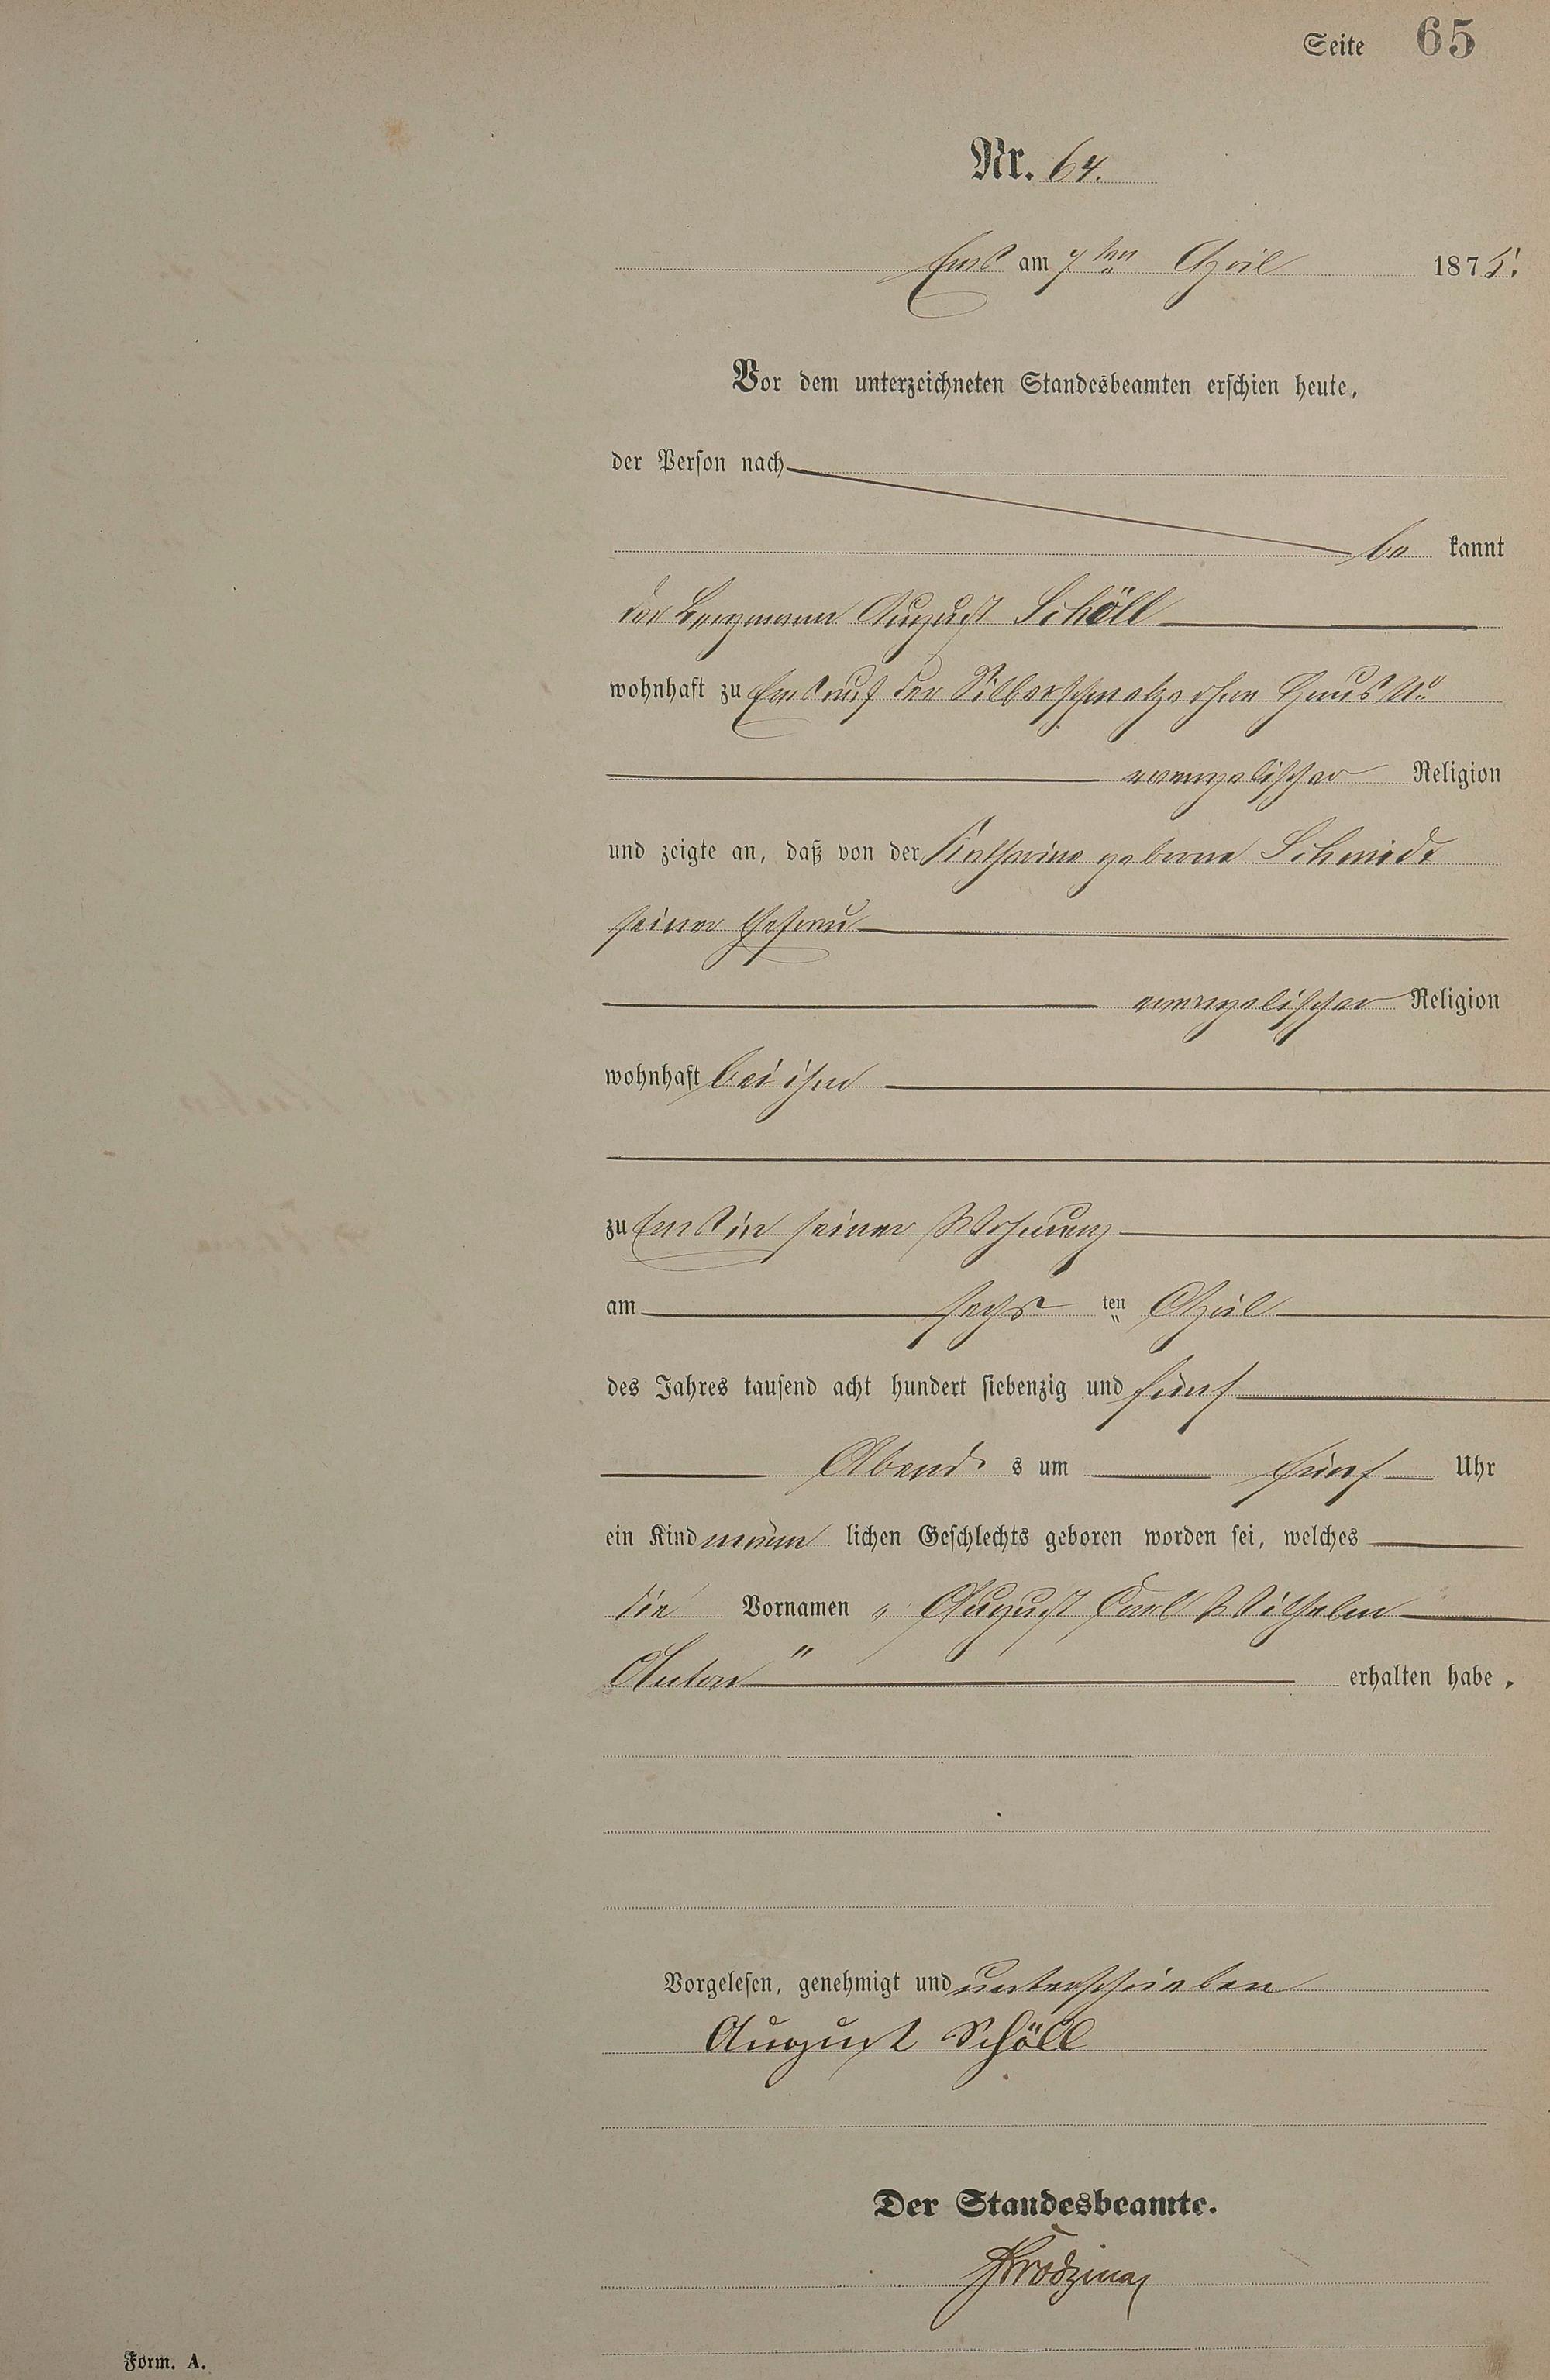 Seite 65
Nr. 64.
Ems am 7ten April 1875.
Vor dem unterzeichneten Standesbeamten erschien heute,
der Person nach
be kannt
der Bergmann August Schöll
wohnhaft zu Ems auf der Silberschmelze ohne Haus No
evangelischer Religion
und zeigte an, daß von der Katharine geborne Schmidt
seiner Ehefrau
evangelischer Religion
wohnhaft bei ihm
zu Ems in seiner Wohnung
am sechs ten April
des Jahres tausend acht hundert siebenzig und fünf
Abend s um fünf Uhr
ein Kind männ lichen Geschlechts geboren worden sei, welches
die Vornamen „August Carl Wilhelm
Anton" erhalten habe.
Vorgelesen, genehmigt und unterschrieben
August Schöll
Der Standesbeamte.
Form. A.